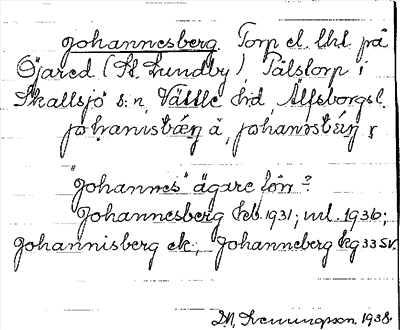 Johannesberg. Torp el. lht. på
Öjared (St. Lundby), Pålstorp i
Skallsjö s:n, Vättle hd Älfsborgs l.
johanisbæ̀rj å, johanisbærj r
"Johannes" ägare förr?
Johannesberg keb. 1931; ml. 1936;
Johannisberg ek; Johanneberg kg 33 SV.
1938